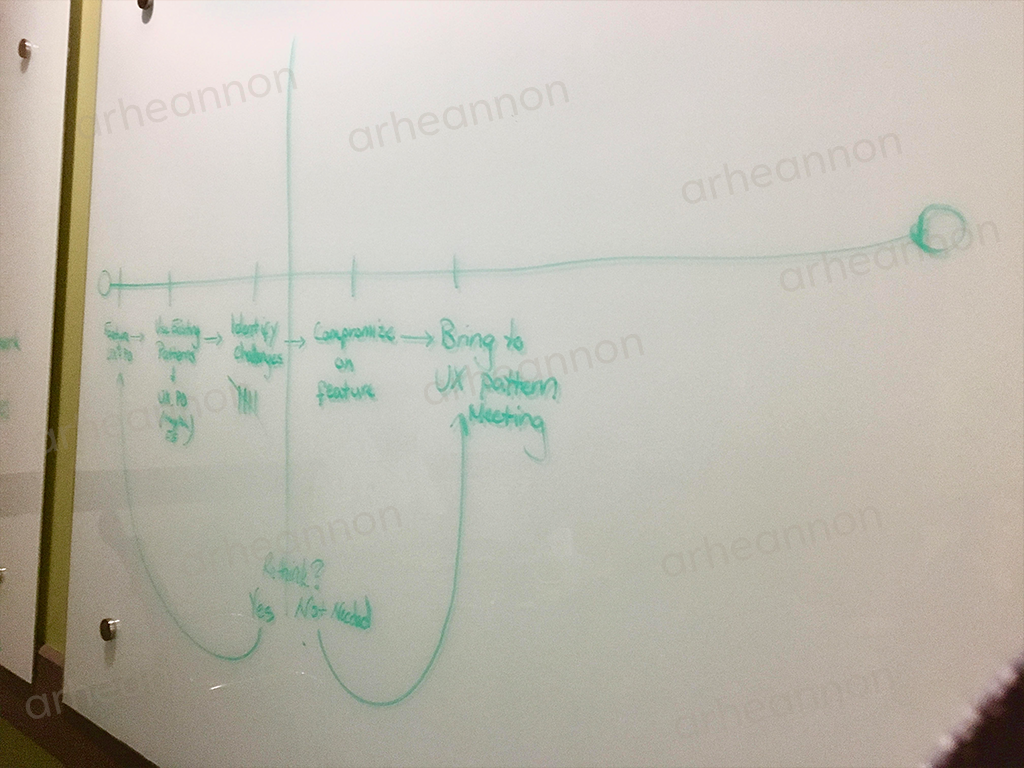 Use Existing
Patterns
UX, PD
Identify
challenges
Compromize
on
feature
Bring to
UX pattern
Meeting
Rethink?
Yes
Not Needed
arheannon
arheannon
arheannon
arheannon
arheannon
arheannon
arheannon
arheannon
arheannon
arheannon
arheannon